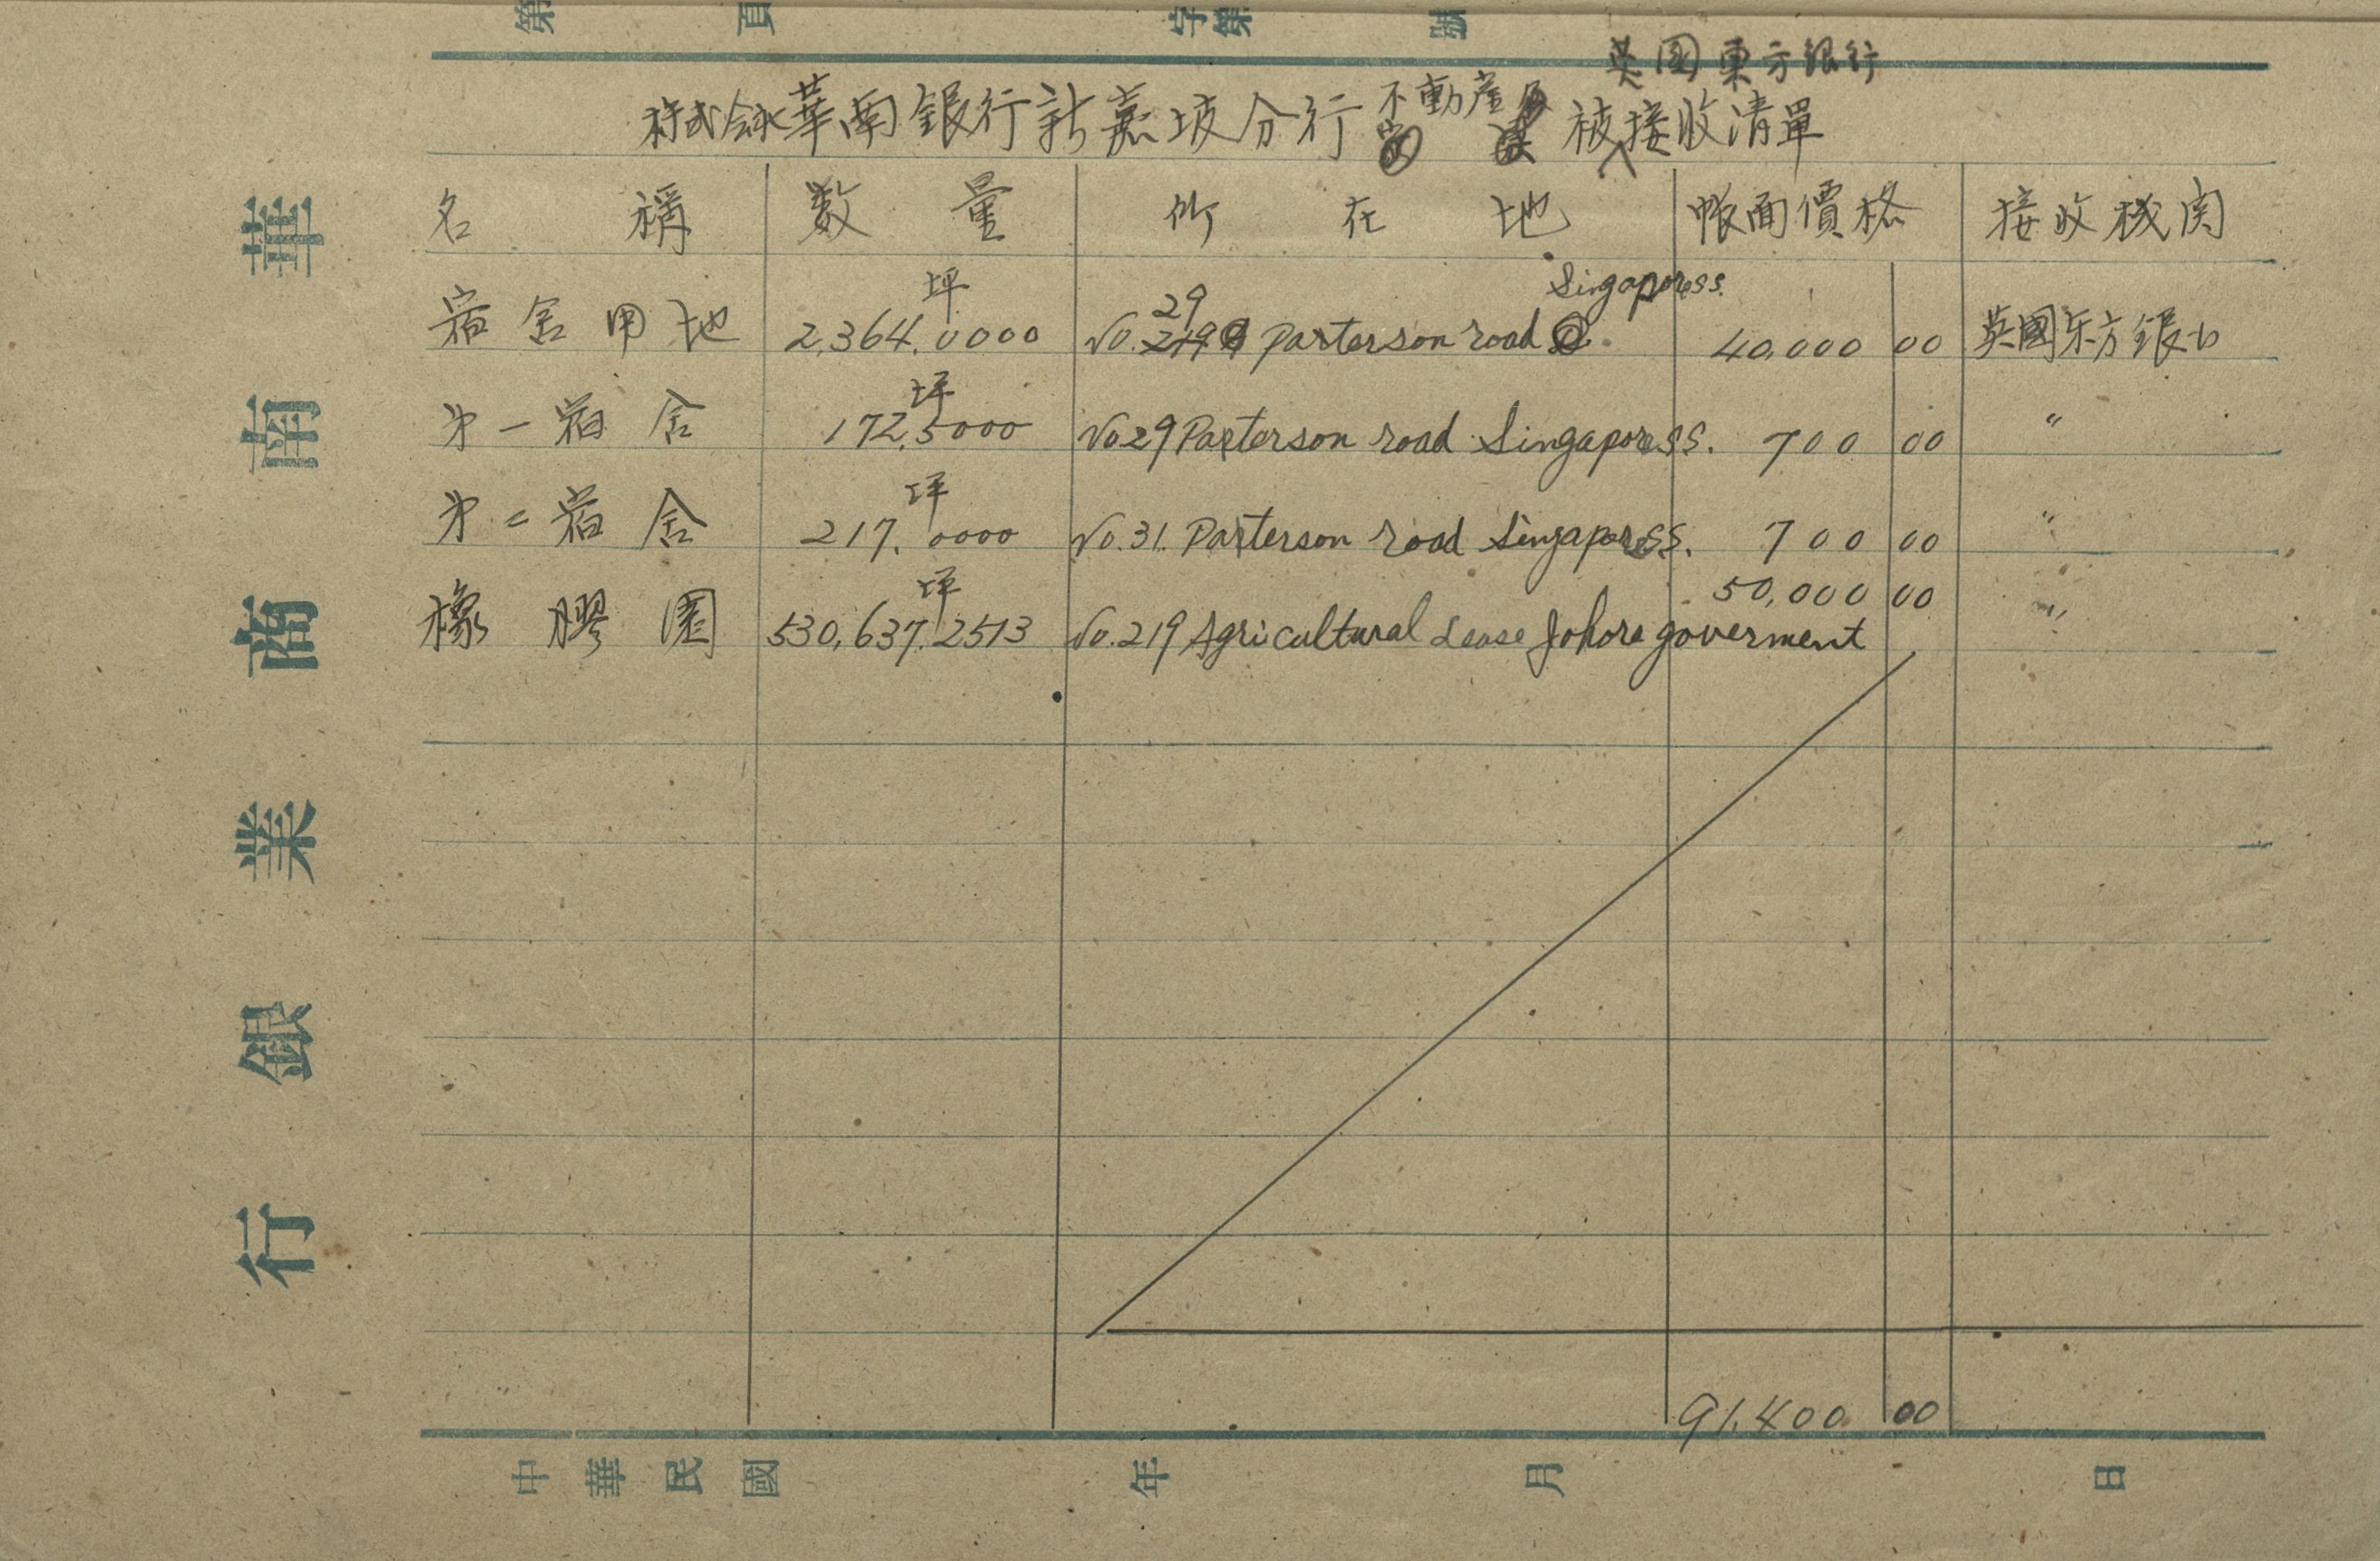 第 頁 字第 號
英國東方銀行
株式会社華南銀行新嘉坡分行不動產被接收清單
名稱 数量 所在地 帳面價格 接收機関
宿舍用地 2,364.0000坪 No.29 Parterson road Singapore S.S. 40,000 00 英國东方銀行
才一宿舍 172.5000坪 No29 Parterson road Singapore S.S. 700 00 〃
才二宿舍 217.0000坪 No.31. Parterson road Singapore S.S. 700 00 〃
橡膠園 530,637.2513坪 No.219 Agricultural Lease Johore goverment 50,000 00 〃
91,400 00
中華民國 年 月 日
華南商業銀行